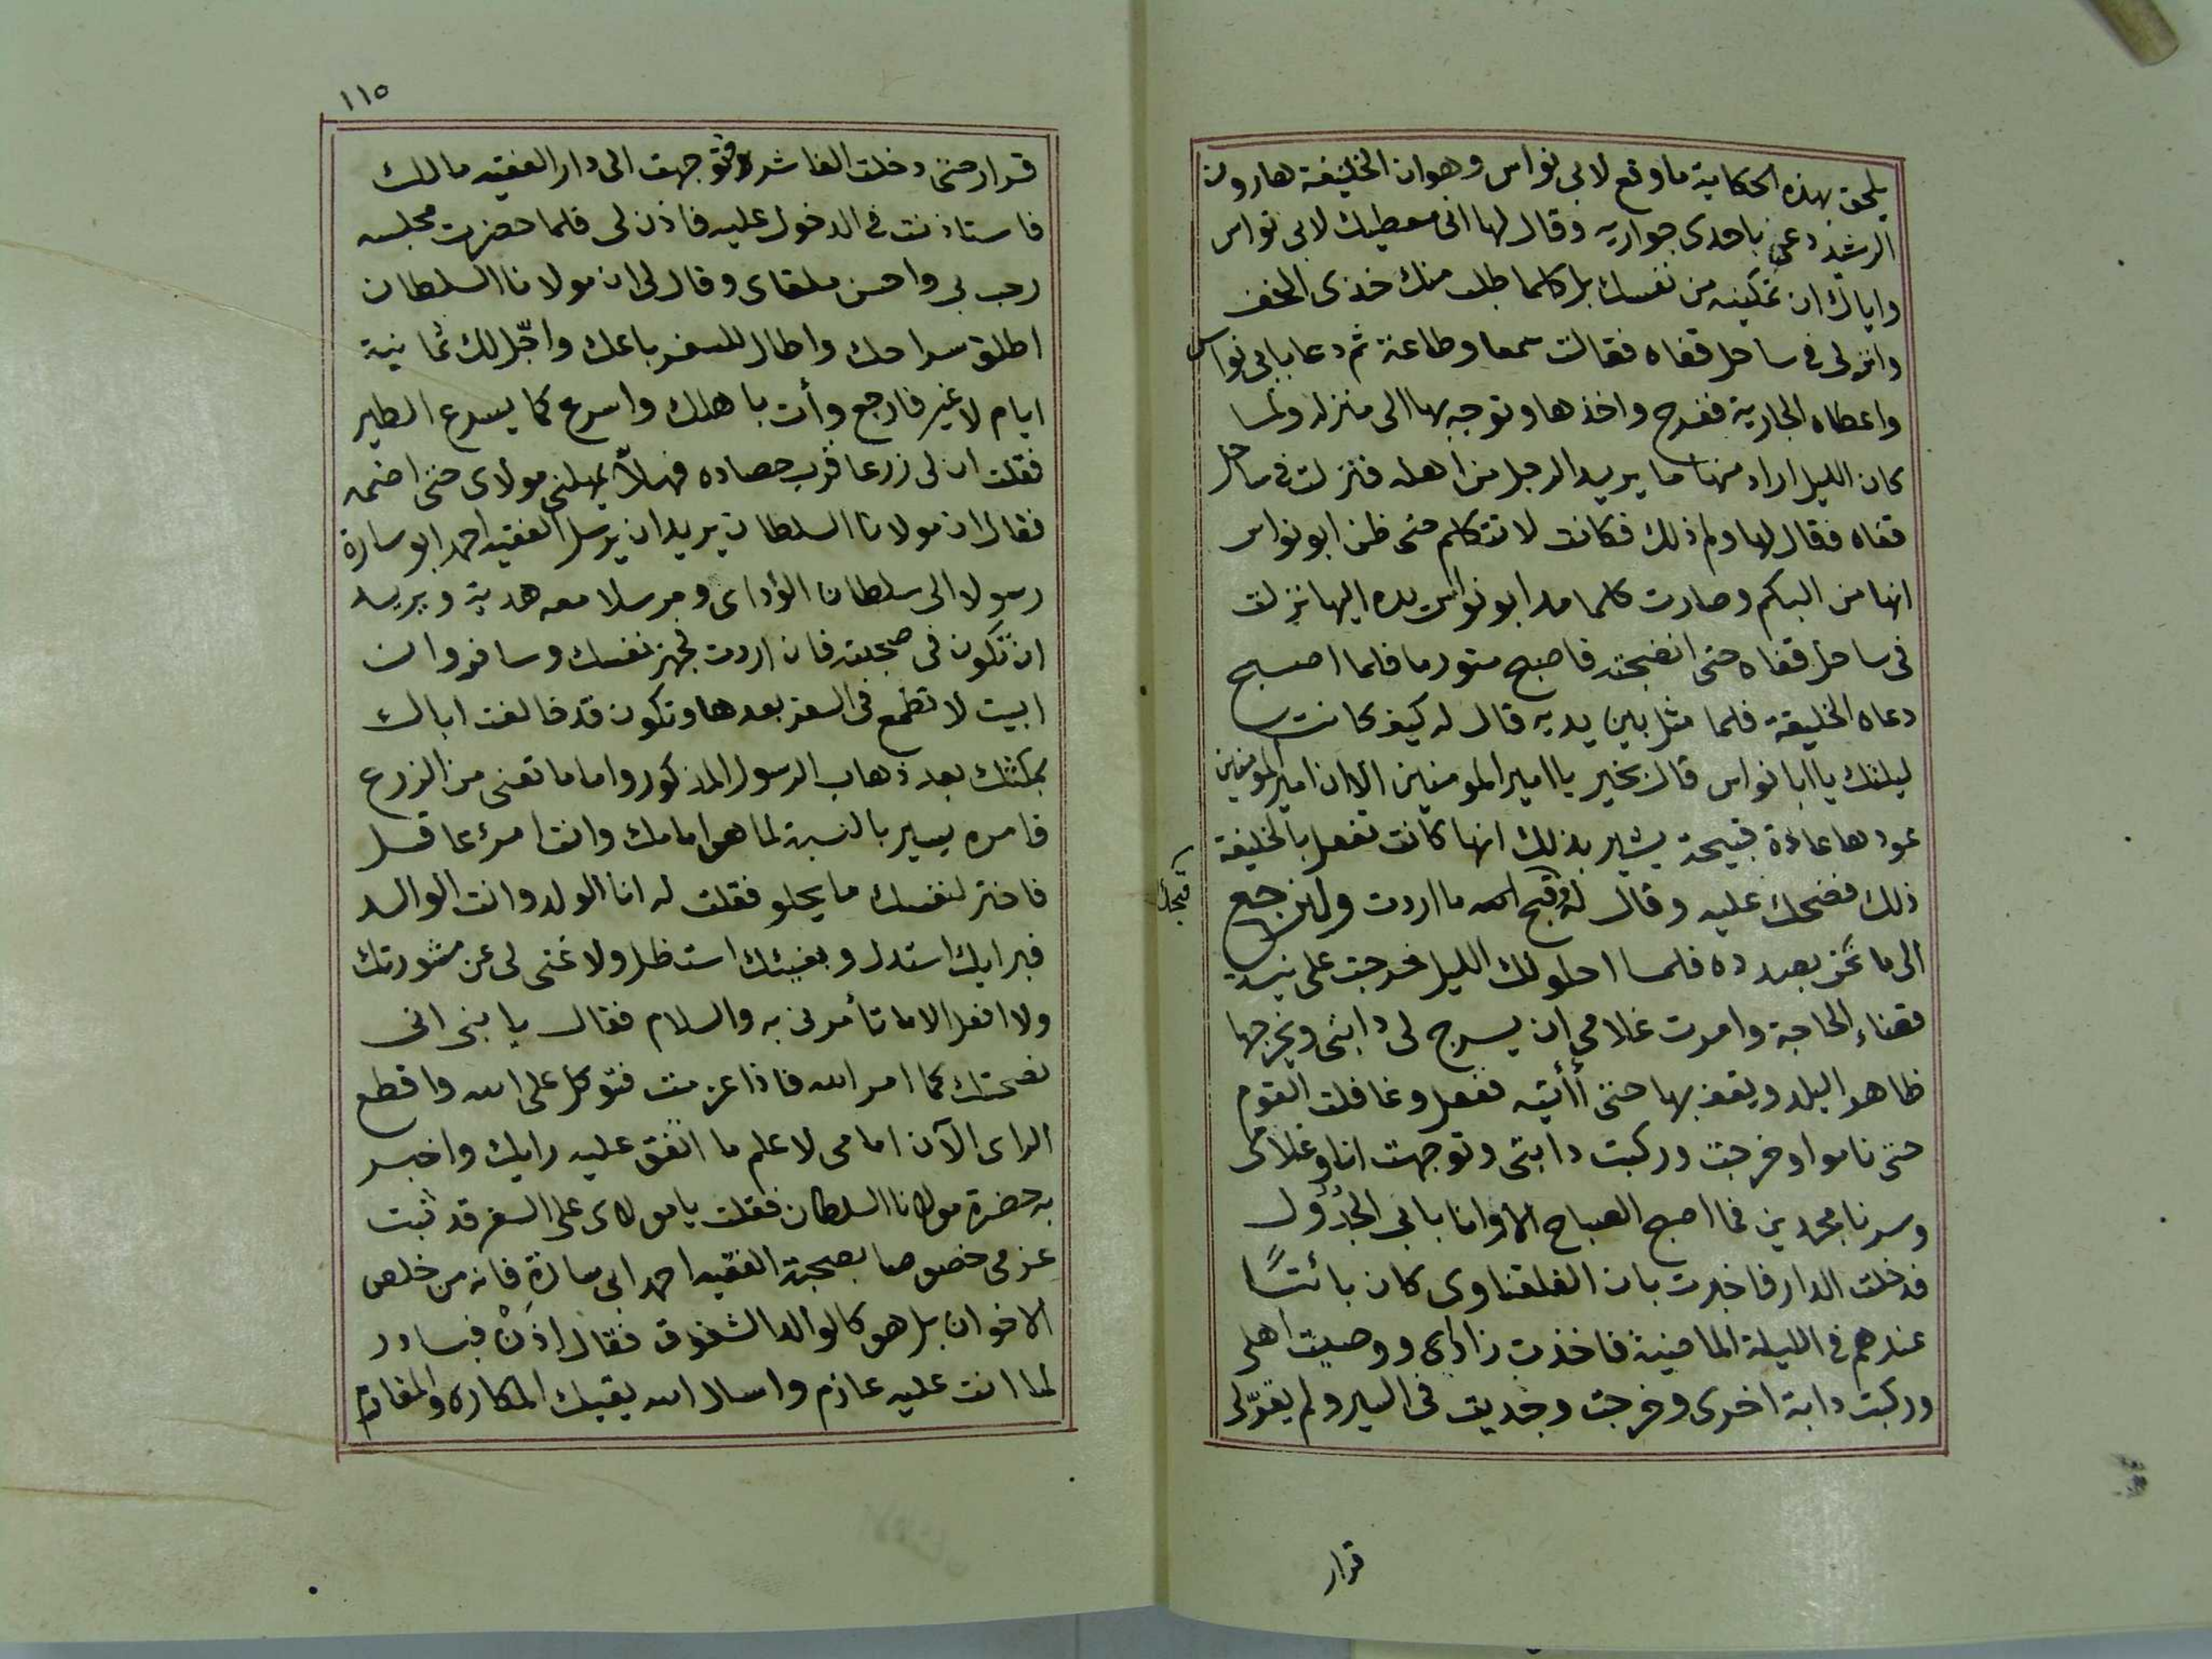 يلحق بهذه الحكاية ما وقع لابى نواس وهو ان الخليفة هارون
الرشيد دعى باحدى جواريه وقال لها انى معطيك لابى نواس
واياك ان تمكينه من نفسك بل كلما طلب منك خذى الخف
وانزلى فى ساحل قفاه فقالت سمعا وطاعة ثم دعا بابى نواس
واعطاه الجارية ففرح واخذها وتوجه بها الى منزله ولما
كان الليل اراد منها ما يريد الرجل من اهله فنزلت فى ساحل
قفاه فقال لها ولم ذلك فكانت لا تتكلم حتى ظن ابو نواس
انها من البكم وصارت كلما مد ابو نواس يده اليها نزلت
فى ساحل قفاه حتى انضجته فاصبح متورما فلما اصبح
دعاه الخليفة فلما مثل بين يديه قال له كيف كانت
ليلتك يا ابا نواس قال بخير يا امير المومنين الا ان امير المومنين
عودها عادة قبيحة يشير بذلك انها كانت تفعل بالخليفة
ذلك فضحك عليه وقال له قبحك الله ما اردت ولنرجع
الى ما نحن بصدده فلما احلولك الليل خرجت على نية
قضاء الحاجة وامرت غلامى ان يسرج لى دابتى ويخرجها
ظاهر البلد ويقف بها حتى أأتيه ففعل وغافلت القوم
حتى ناموا وخرجت وركبت دابتى وتوجهت انا وغلامى
وسرنا مجدين فما اصبح الصباح الا وانا بابى الجدول
فدخلت الدار فاخبرت بان الفلقناوى كان بائتًا
عندهم فى الليلة الماضية فاخذت زادى ووصيت اهلى
وركبت دابة اخرى وخرجت وجديت فى السير ولم يقرّ لى
قبحك
قرار
١١٥
قرار حتى دخلت الفاشر فتوجهت الى دار الفقيه مالك
فاستاذنت فى الدخول عليه فاذن لى فلما حضرت مجلسه
رحب بى واحسن ملقاى وقال لى ان مولانا السلطان
اطلق سراحك واطال للسفر باعك واجّل لك ثمانية
ايام لا غير فارجع وأت باهلك واسرع كما يسرع الطير
فقلت ان لى زرعا قرب حصاده فهلاّ يمهلنى مولاى حتى اضمه
فقال ان مولانا السلطان يريد ان يرسل الفقيه احمد ابو سارة
رسولا الى سلطان الوداى ومرسلا معه هدية ويريد
ان تكون فى صحبته فان اردت فجهز نفسك وسافر وان
ابيت لا تطمع فى السفر بعدها وتكون قد خالفت اباك
بمكثك بعد ذهاب الرسول المذكور واما ما تعنى من الزرع
فامره يسير بالنسبة لما هو امامك وانت امرء عاقل
فاختر لنفسك ما يحلو فقلت له انا الولد وانت الوالد
فبرايك استدل وبفيئك استظل ولا غنى لى عن مشورتك
ولا افعل الا ما تأمرنى به والسلام فقال يا بنى انى
نصحتك كما امر الله فاذا عزمت فتوكل على الله واقطع
الراى الآن امامى لاعلم ما اتفق عليه رايك واخبر
به حضرة مولانا السلطان فقلت يا مولاى على السفر قد ثبت
عزمى خصوصا بصحبة الفقيه احمد ابى سارة فانه من خلص
الاخوان بل هو كالوالد الشفوق فقال اذنْ فبادر
لما انت عليه عازم واسال الله يقيك المكاره والمغارم